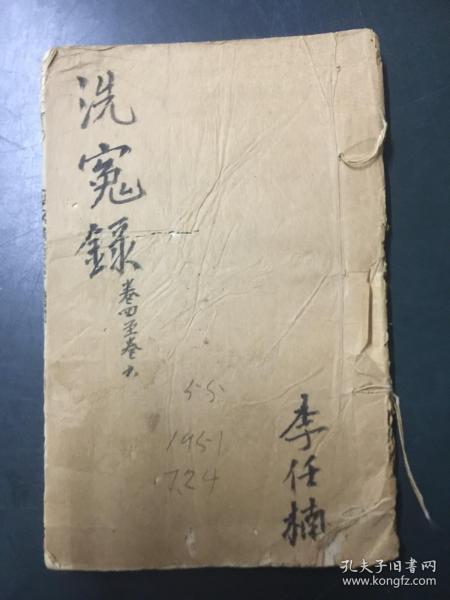 洗寃錄
卷四至卷六
55
1951
7.24
李任楠
孔夫子旧书网
www.kongfz.com